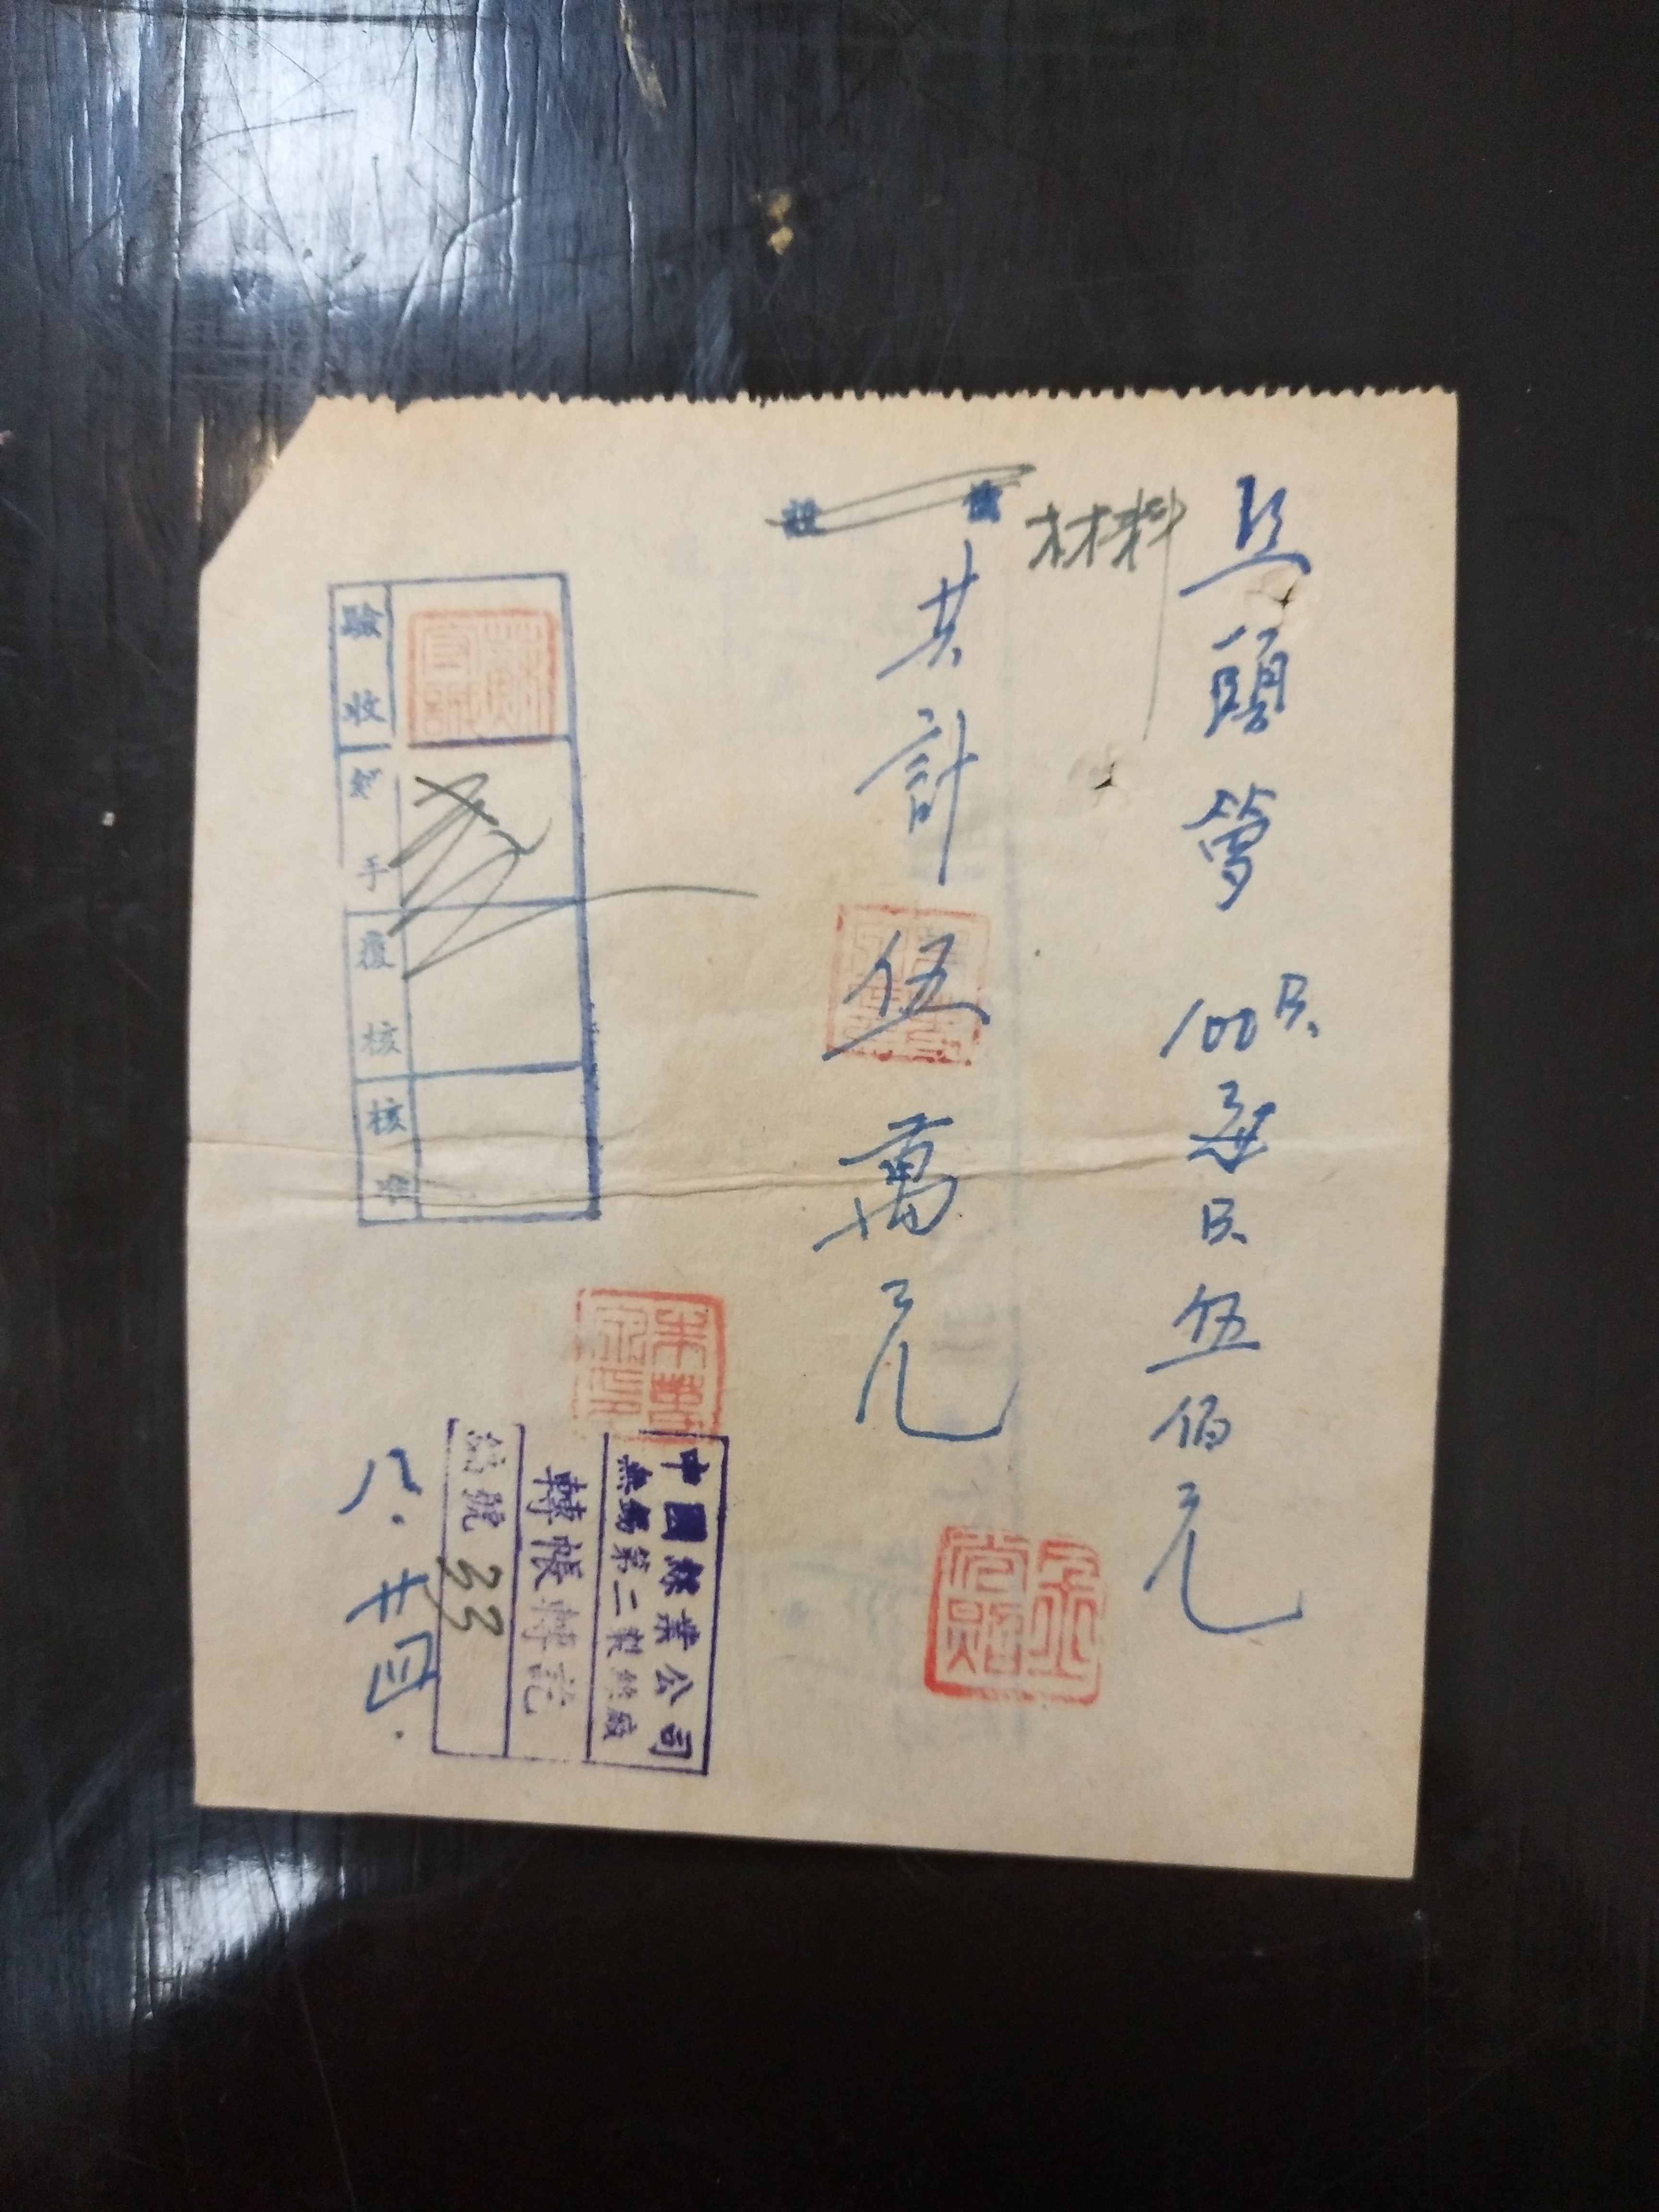 頭 管 100只 每只 伍佰元
材料
共計 伍萬元
中國絲業公司
無錫第二製絲廠
轉帳轉訖
編號 33
驗收
經手
覆核
核准
八.廿四.